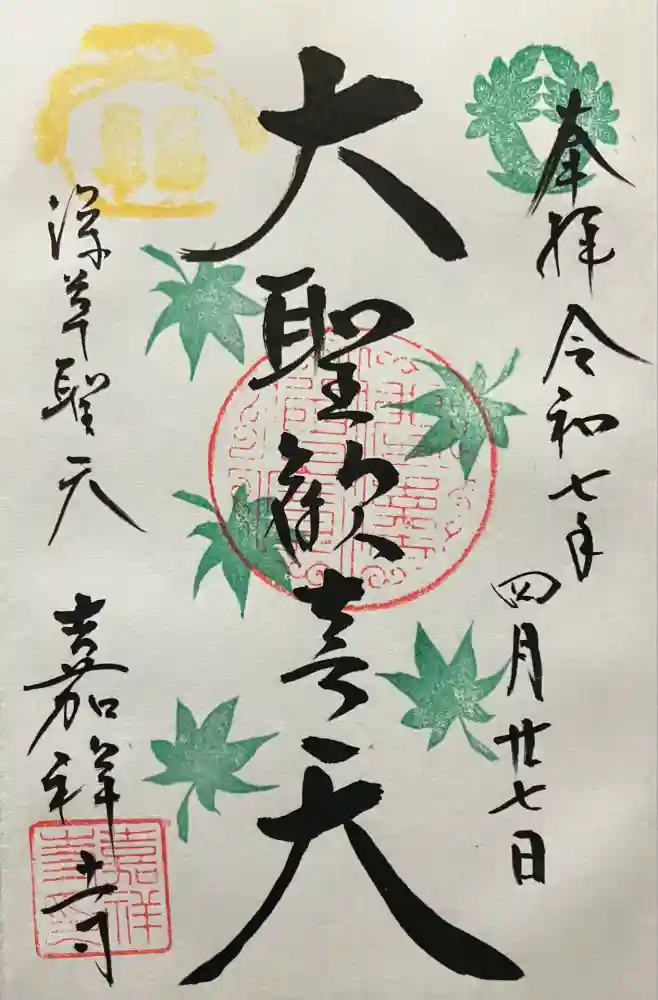 奉拝 令和七年 四月廿七日
大聖歓喜天
深草聖天 嘉祥寺
嘉祥